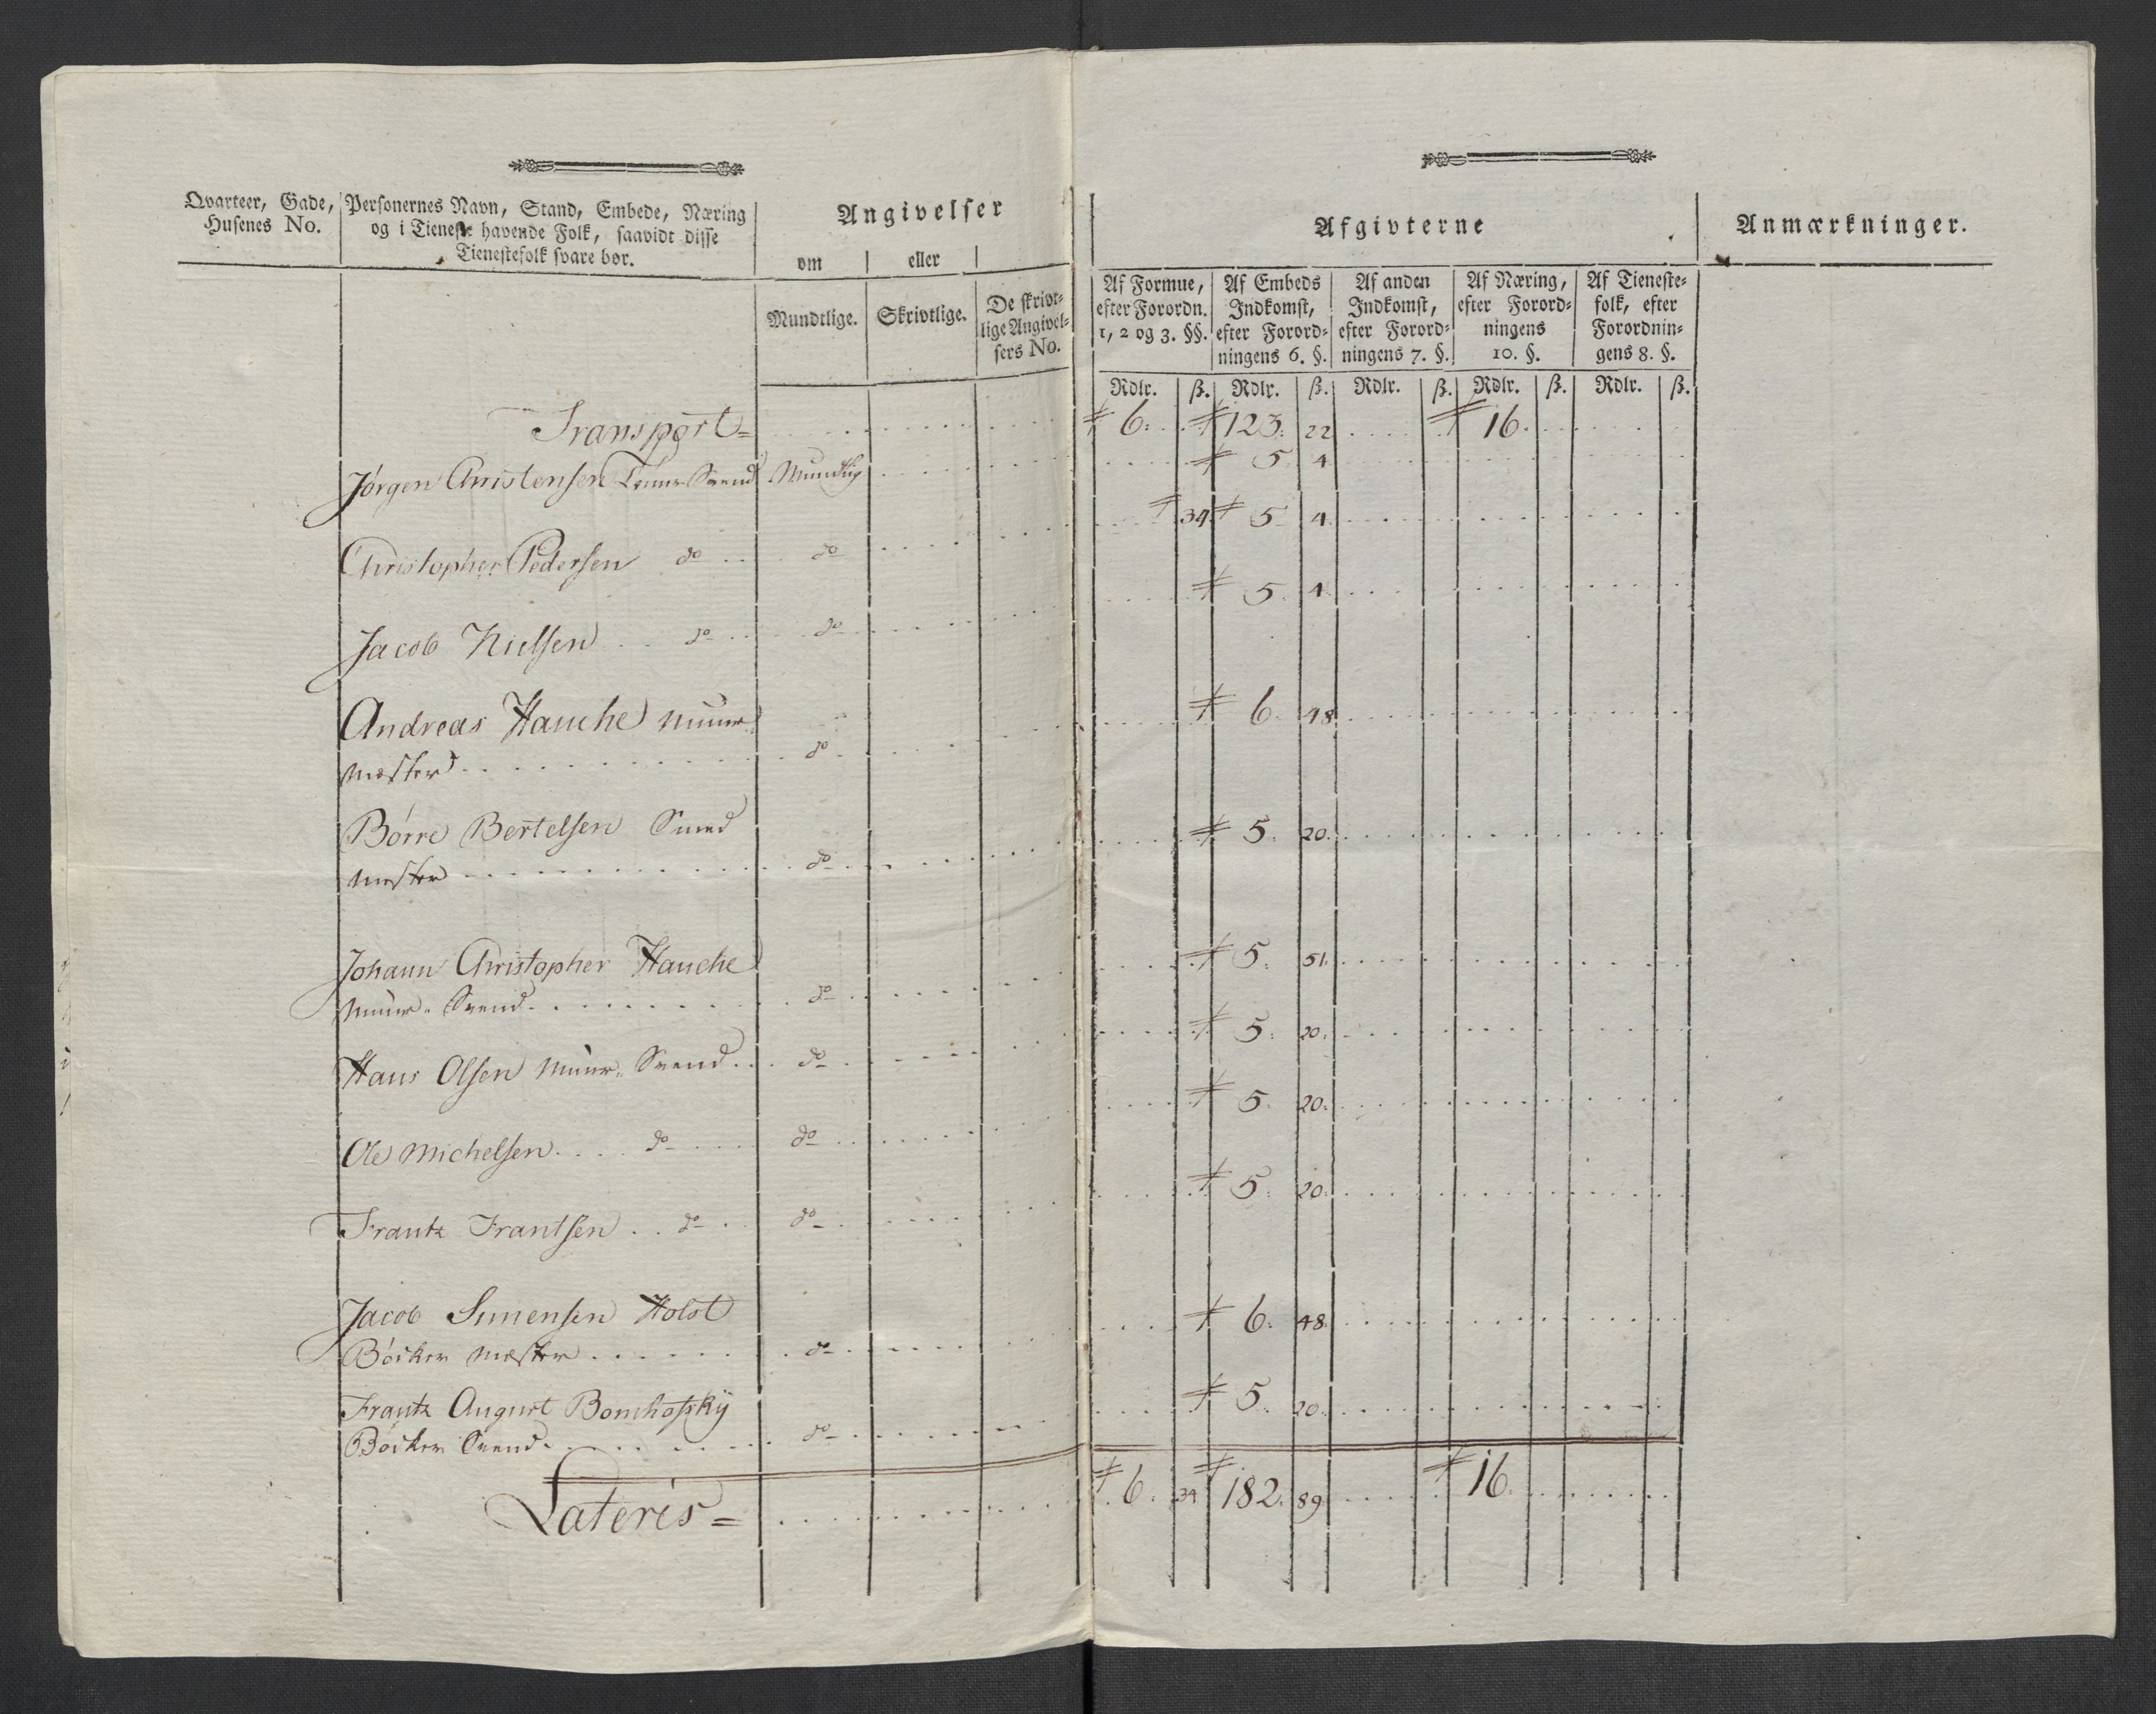 Qvarteer, Gade, Husenes No.
Personernes Navn, Stand, Embede, Næring
og i Tieneste havende Folk, saavidt disse
Tienestefolk svare bør.
Angivelser
om | eller
Mundtlige. Skrivtlige. De skrivt-
lige Angivel-
sers No.
Afgivterne
Anmærkninger.
Af Formue,
efter Forordn.
1, 2 og 3. §§.
Af Embeds
Indkomst,
efter Forord-
ningens 6. §.
Af anden
Indkomst,
efter Forord-
ningens 7. §.
Af Næring,
efter Forord-
ningens
10. §.
Af Tieneste-
folk, efter
Forordnin-
gens 8. §.
Rdlr. ß. Rdlr. ß. Rdlr. ß. Rdlr. ß. Rdlr. ß.
Transport= 6. 123. 22 16.
Jörgen Christensen Svend Mundtlig 5 4
Christopher Pedersen do do 34 5 4
Jacob Nielsen do do 5. 4.
Andreas Hauche Muur-
mester do 6. 48
Börre Bertelsen Smed
mester do 5. 20.
Johann Christopher Hauche
Muur-Svend do 5. 51.
Hans Olsen Muur-Svend do 5. 20.
Ole Michelsen do do 5. 20.
Frantz Frantsen do do 5. 20.
Jacob Simensen Holst
Böcker Mester do 6. 48.
Frantz August Bomhofsky
Böcker Svend do 5. 20.
Lateris= 6. 34 182. 89. 16.